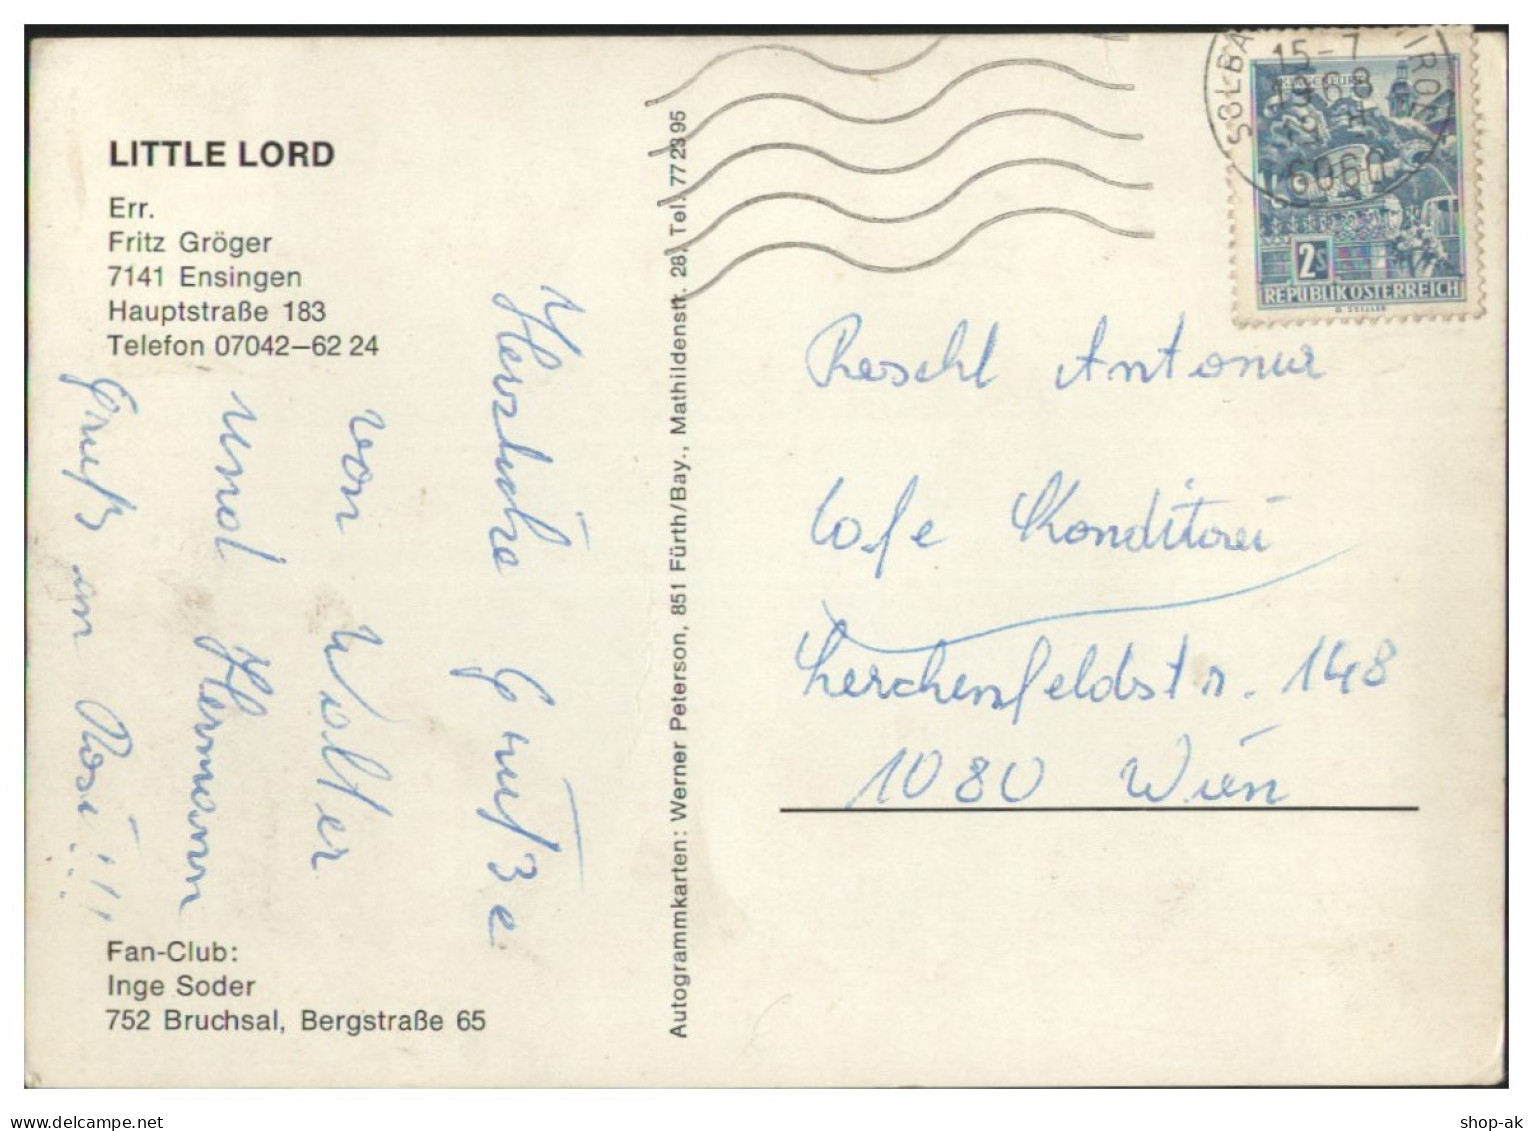 LITTLE LORD
Err.
Fritz Gröger
7141 Ensingen
Hauptstraße 183
Telefon 07042–62 24
Herzliche Grüße
von Walter
und Hermann
Gruß an Rosi!!!
Fan-Club:
Inge Soder
752 Bruchsal, Bergstraße 65
Autogrammkarten: Werner Peterson, 851 Fürth/Bay., Mathildenstr. 26, Tel. 77 23 95
15-7
1968
6060
2S
REPUBLIK ÖSTERREICH
Raschl
Cafe Konditorei
Lerchenfeldstr. 148
1080 Wien
delcampe.net
shop-ak